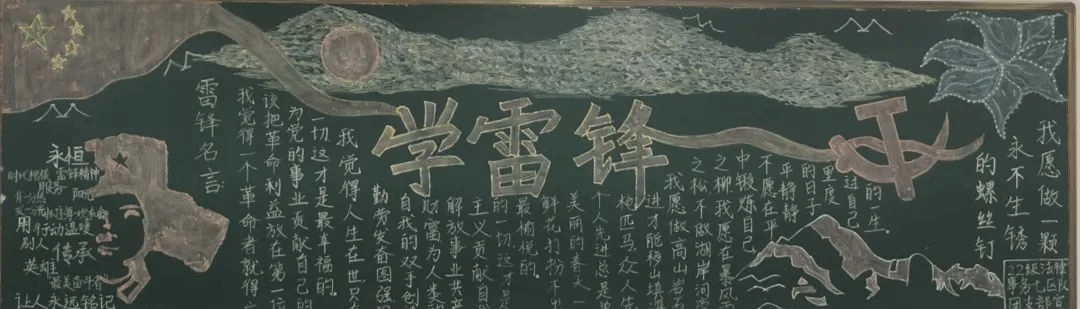 学雷锋
雷锋名言
我觉得一个革命者就得
该把革命利益放在第一位
为党的事业贡献自己的
一切这才是最幸福的
我觉得人生在世只
勤劳发奋图强
自我的双手创
财富为人类
解放事业共产
主义贡献自
的一切这才是
最愉悦的
鲜花打扮不出
美丽的春天一
个人先进总是
枪匹马众人先
进才能移山填海
我愿做高山岩石
之松不做湖岸河旁
之柳我愿在暴风
中锻炼自己
不愿在平
平静静
的日子
里度
过自己
的一生
我愿做一颗
永不生锈
的螺丝钉
永恒
雷锋精神
服务
传承
英雄
让人永远铭记
22级法律
事务七区队
团支部宣